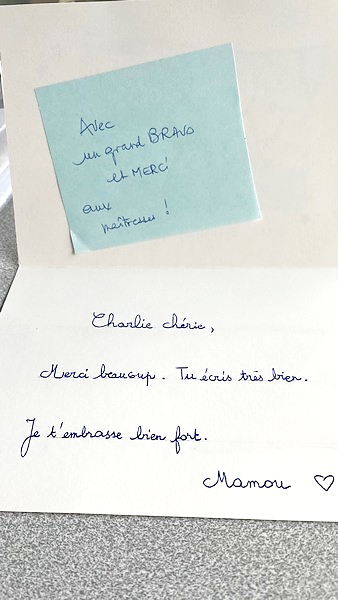 Avec
un grand BRAVO
et MERCI
aux
maîtresses !
Charlie chérie,
Merci beaucoup. Tu écris très bien.
Je t'embrasse bien fort.
Mamou ♡